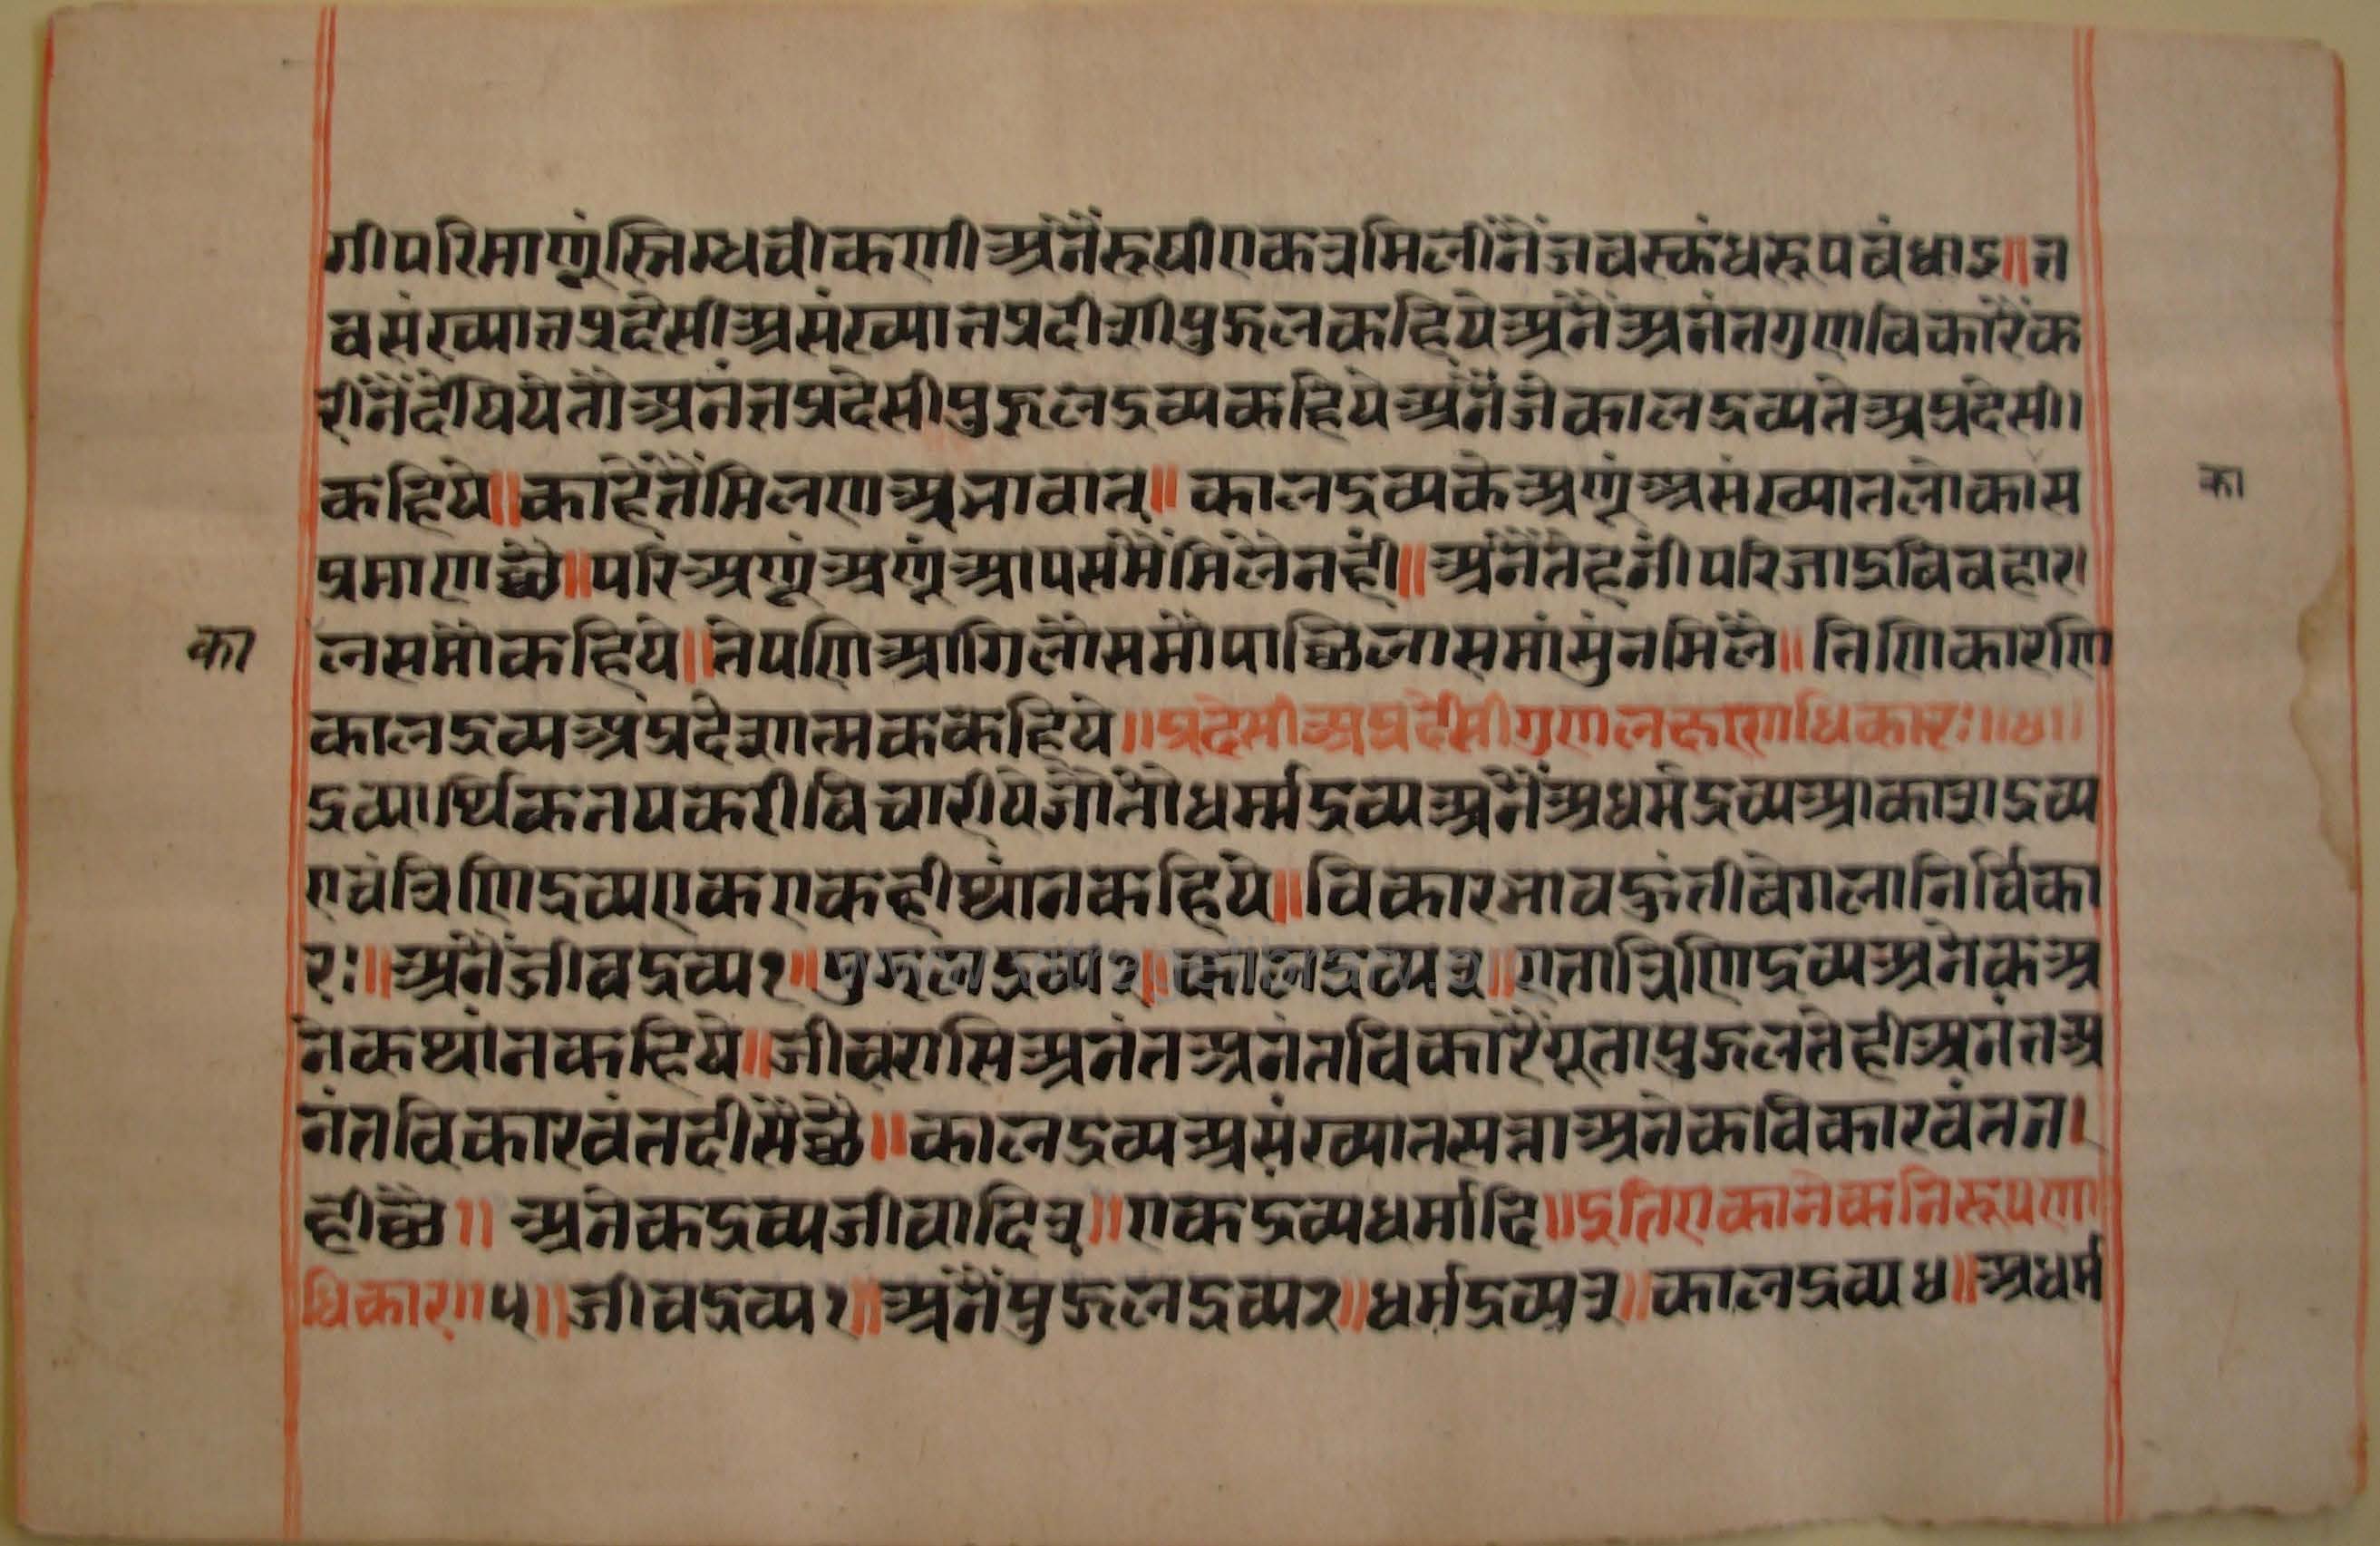 गीपरिमाणुंस्निग्धचीकणीअंनैंरूषीएकत्रमिलींनैंजवस्कंधरूपबंधाऽ॥त
बसंख्यातप्रदेसीअसंख्यातप्रदीशीपुद्गलकहियेअंनैंअनंतगुणविकारैंक
रीनैंदेषियेतौअनंतप्रदेसीपुद्गलद्रव्यकहियेअंनैंजेकालद्रव्यतेअप्रदेसी।
कहिये॥काहेतैंमिलणअभावात्॥कालद्रव्यकेअणुंअसंख्यातलोकास
प्रमाणछै॥परिंअणुंअणुंआपसंमैंमिलेनहीं॥अंनैंतेहनीपरिजाद्रविवहार।
का
लसमौकहिये॥तेपणिआगिलौसमौपाछिलासमांसुंनमिलै॥तिणिकारणि
कालद्रव्यअंप्रदेशात्मककहिये॥प्रदेसीअप्रदेसीगुणलक्षणाधिकारः॥४॥
द्रव्यार्थिकनयकरीविचारीयेजौतौधर्म्मद्रव्यअनैंअधर्मद्रव्यआकाशद्रव्य
एवंत्रिणिद्रव्यएकएकहीथांनकहिये॥विकारभावहुंतीवेगलानिर्विका
रः॥अंनैंजीवद्रव्य१॥पुद्गलद्रव्य२॥कालद्रव्य३॥एतात्रिणिद्रव्यअनेकअ
नेकथांनकहिये॥जीवरासिअनंतअनंतविकारैंयूतापुद्गलतेहीअनंतअ
नंतविकारवंतदीसैछै॥कालद्रव्यअसंख्यातसत्ताअनेकविकारवंतन।
हीछै॥अनेकद्रव्यजीवादि३॥एकद्रव्यधर्मादि॥इतिएकानेकनिरूपणा
धिकार॥५॥जीवद्रव्य१॥अंनैंपुद्गलद्रव्य२॥धर्मद्रव्य३॥कालद्रव्य४॥अधर्म
का